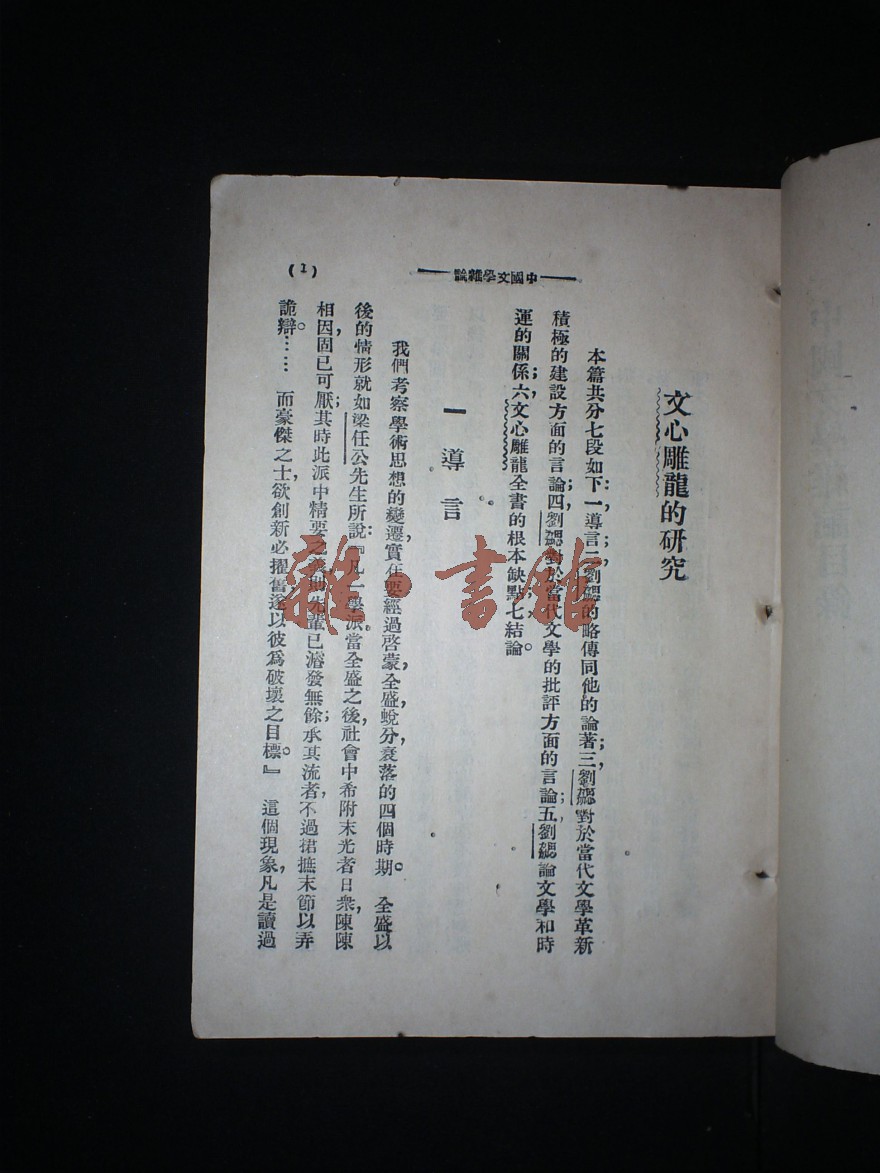 中國文學雜論
(1)
文心雕龍的研究
本篇共分七段如下：一，導言；二，劉勰的略傳同他的論著；三，劉勰對於當代文學革新
積極的建設方面的言論；四，劉勰對於當代文學的批評方面的言論；五，劉勰論文學和時
運的關係；六，文心雕龍全書的根本缺點；七，結論。
一 導言
我們考察學術思想的變遷，實在要經過啓蒙，全盛，蛻分，衰落的四個時期。全盛以
後的情形就如梁任公先生所說：『凡一學派當全盛之後，社會中希附末光者日衆，陳陳
相因，固已可厭；其時此派中精要之義，則先輩已濬發無餘；承其流者，不過捃摭末節以弄
詭辯。……而豪傑之士，欲創新必擢舊，遂以彼爲破壞之目標。』這個現象，凡是讀過
雜·書館